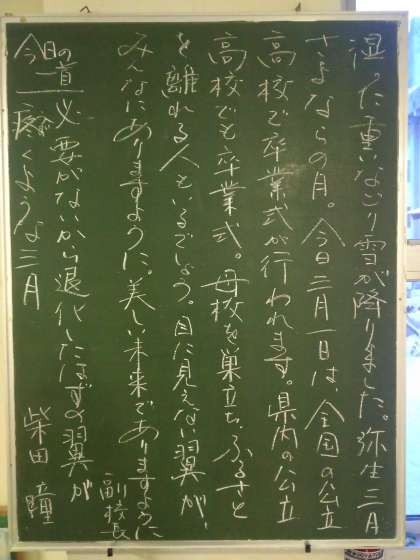 湿った重いなごり雪が降りました。弥生三月
さよならの月。今日三月一日は、全国の公立
高校で卒業式が行われます。県内の公立
高校でも卒業式。母校を巣立ち、ふるさと
を離れる人もいるでしょう。目に見えない翼が、
みんなにありますように。美しい未来でありますように
副校長
今日の一首
必要がないから退化したはずの翼が
疼くような三月
柴田瞳